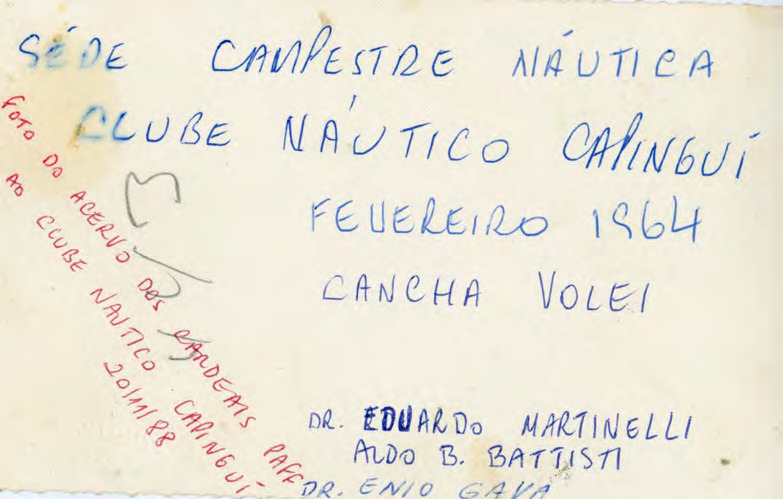 SÉDE CAMPESTRE NÁUTICA
CLUBE NÁUTICO CAPINGUÍ
FEVEREIRO 1964
CANCHA VOLEI
DR. EDUARDO MARTINELLI
ALDO B. BATTISTI
DR. ENIO GAVA
FOTO DO ACERVO DOS CARDEAIS
AO CLUBE NAUTICO CAPINGUÍ
20/11/88